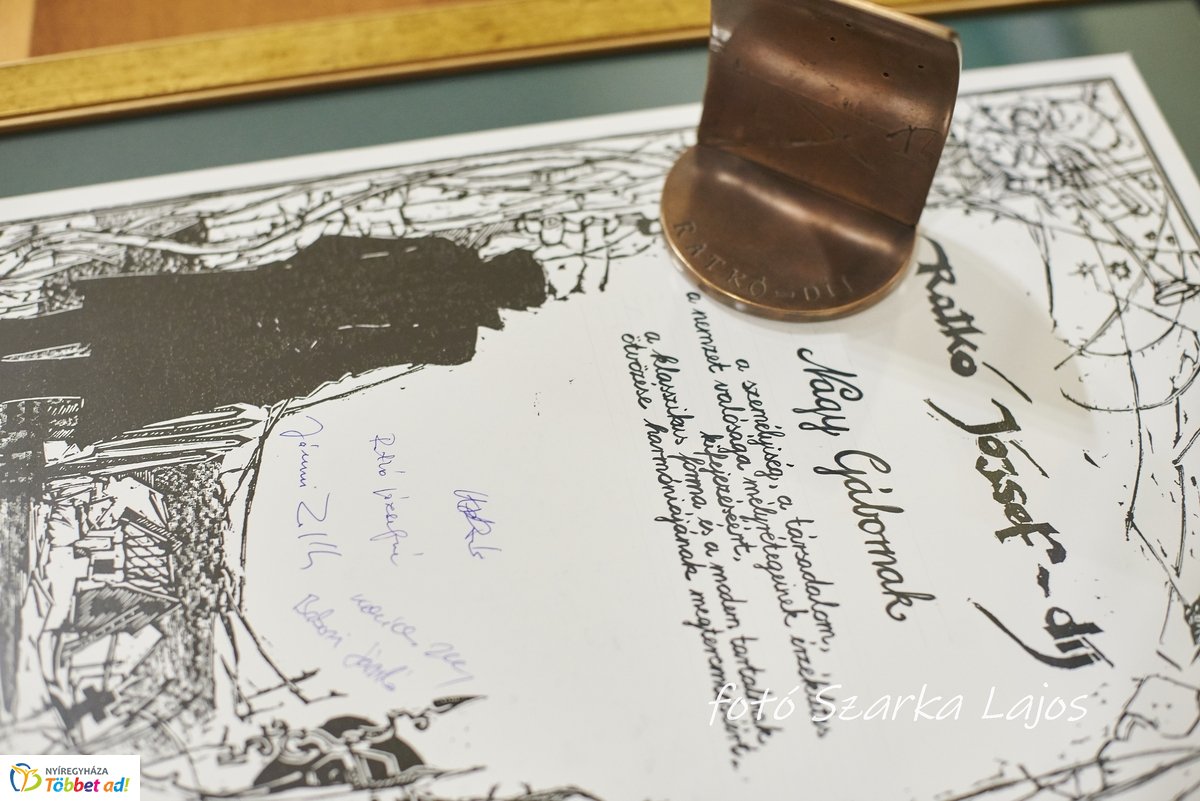 RATKÓ-DÍJ
Ratkó József-díj
Nagy Gábornak
a személyiség, a társadalom,
a nemzet valósága mélyrétegeinek érzékletes
kifejezéséért,
a klasszikus forma és a modern tartalmak
ötvözése harmóniájának megteremtéséért.
Jánosi Zoltán
fotó Szarka Lajos
NYÍREGYHÁZA
Többet ad!